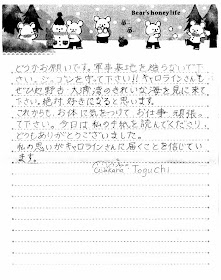 Bear's honey life
どうかお願いです。軍事基地を造らないで下
さい。ジュゴンを守って下さい!! キャロラインさんも
ぜひ辺野古・大浦湾のきれいな海を見に来て
下さい。絶対、好きになると思います。
これからも、お体に気をつけて、お仕事頑張っ
て下さい。今日は私の手紙を読んでくださり、
どうもありがとうございました。
私の思いがキャロラインさんに届くことを信じてい
ます。
Wakana Toguchi